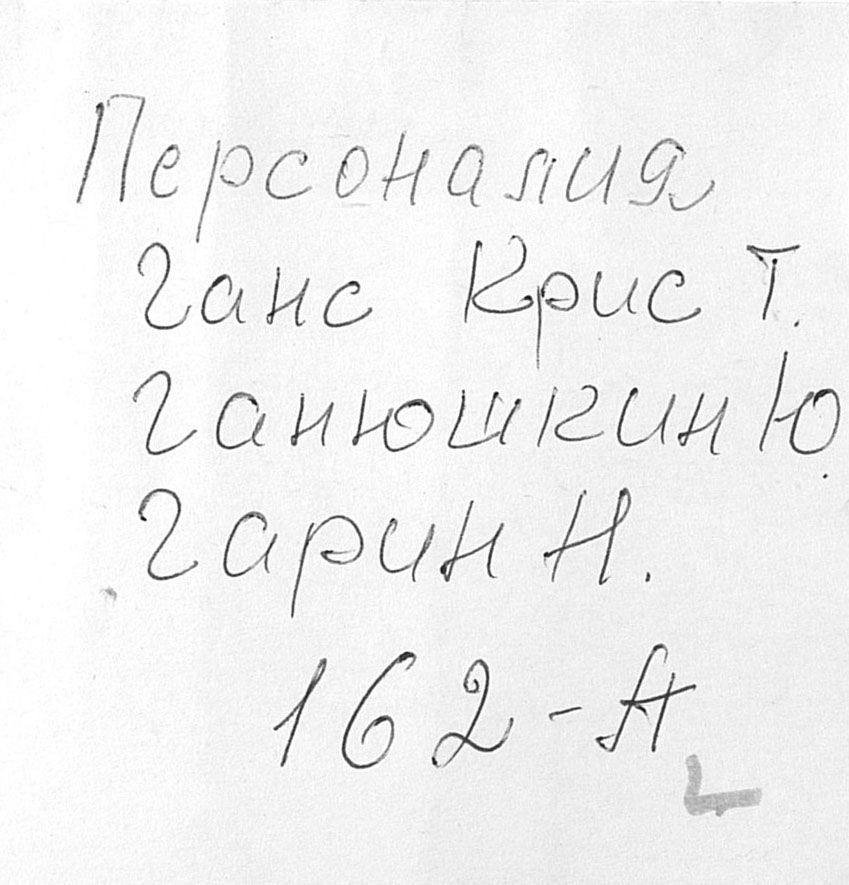 Персоналия
Ганс Крис Т.
Ганюшкин Ю.
Гарин Н.
162-А